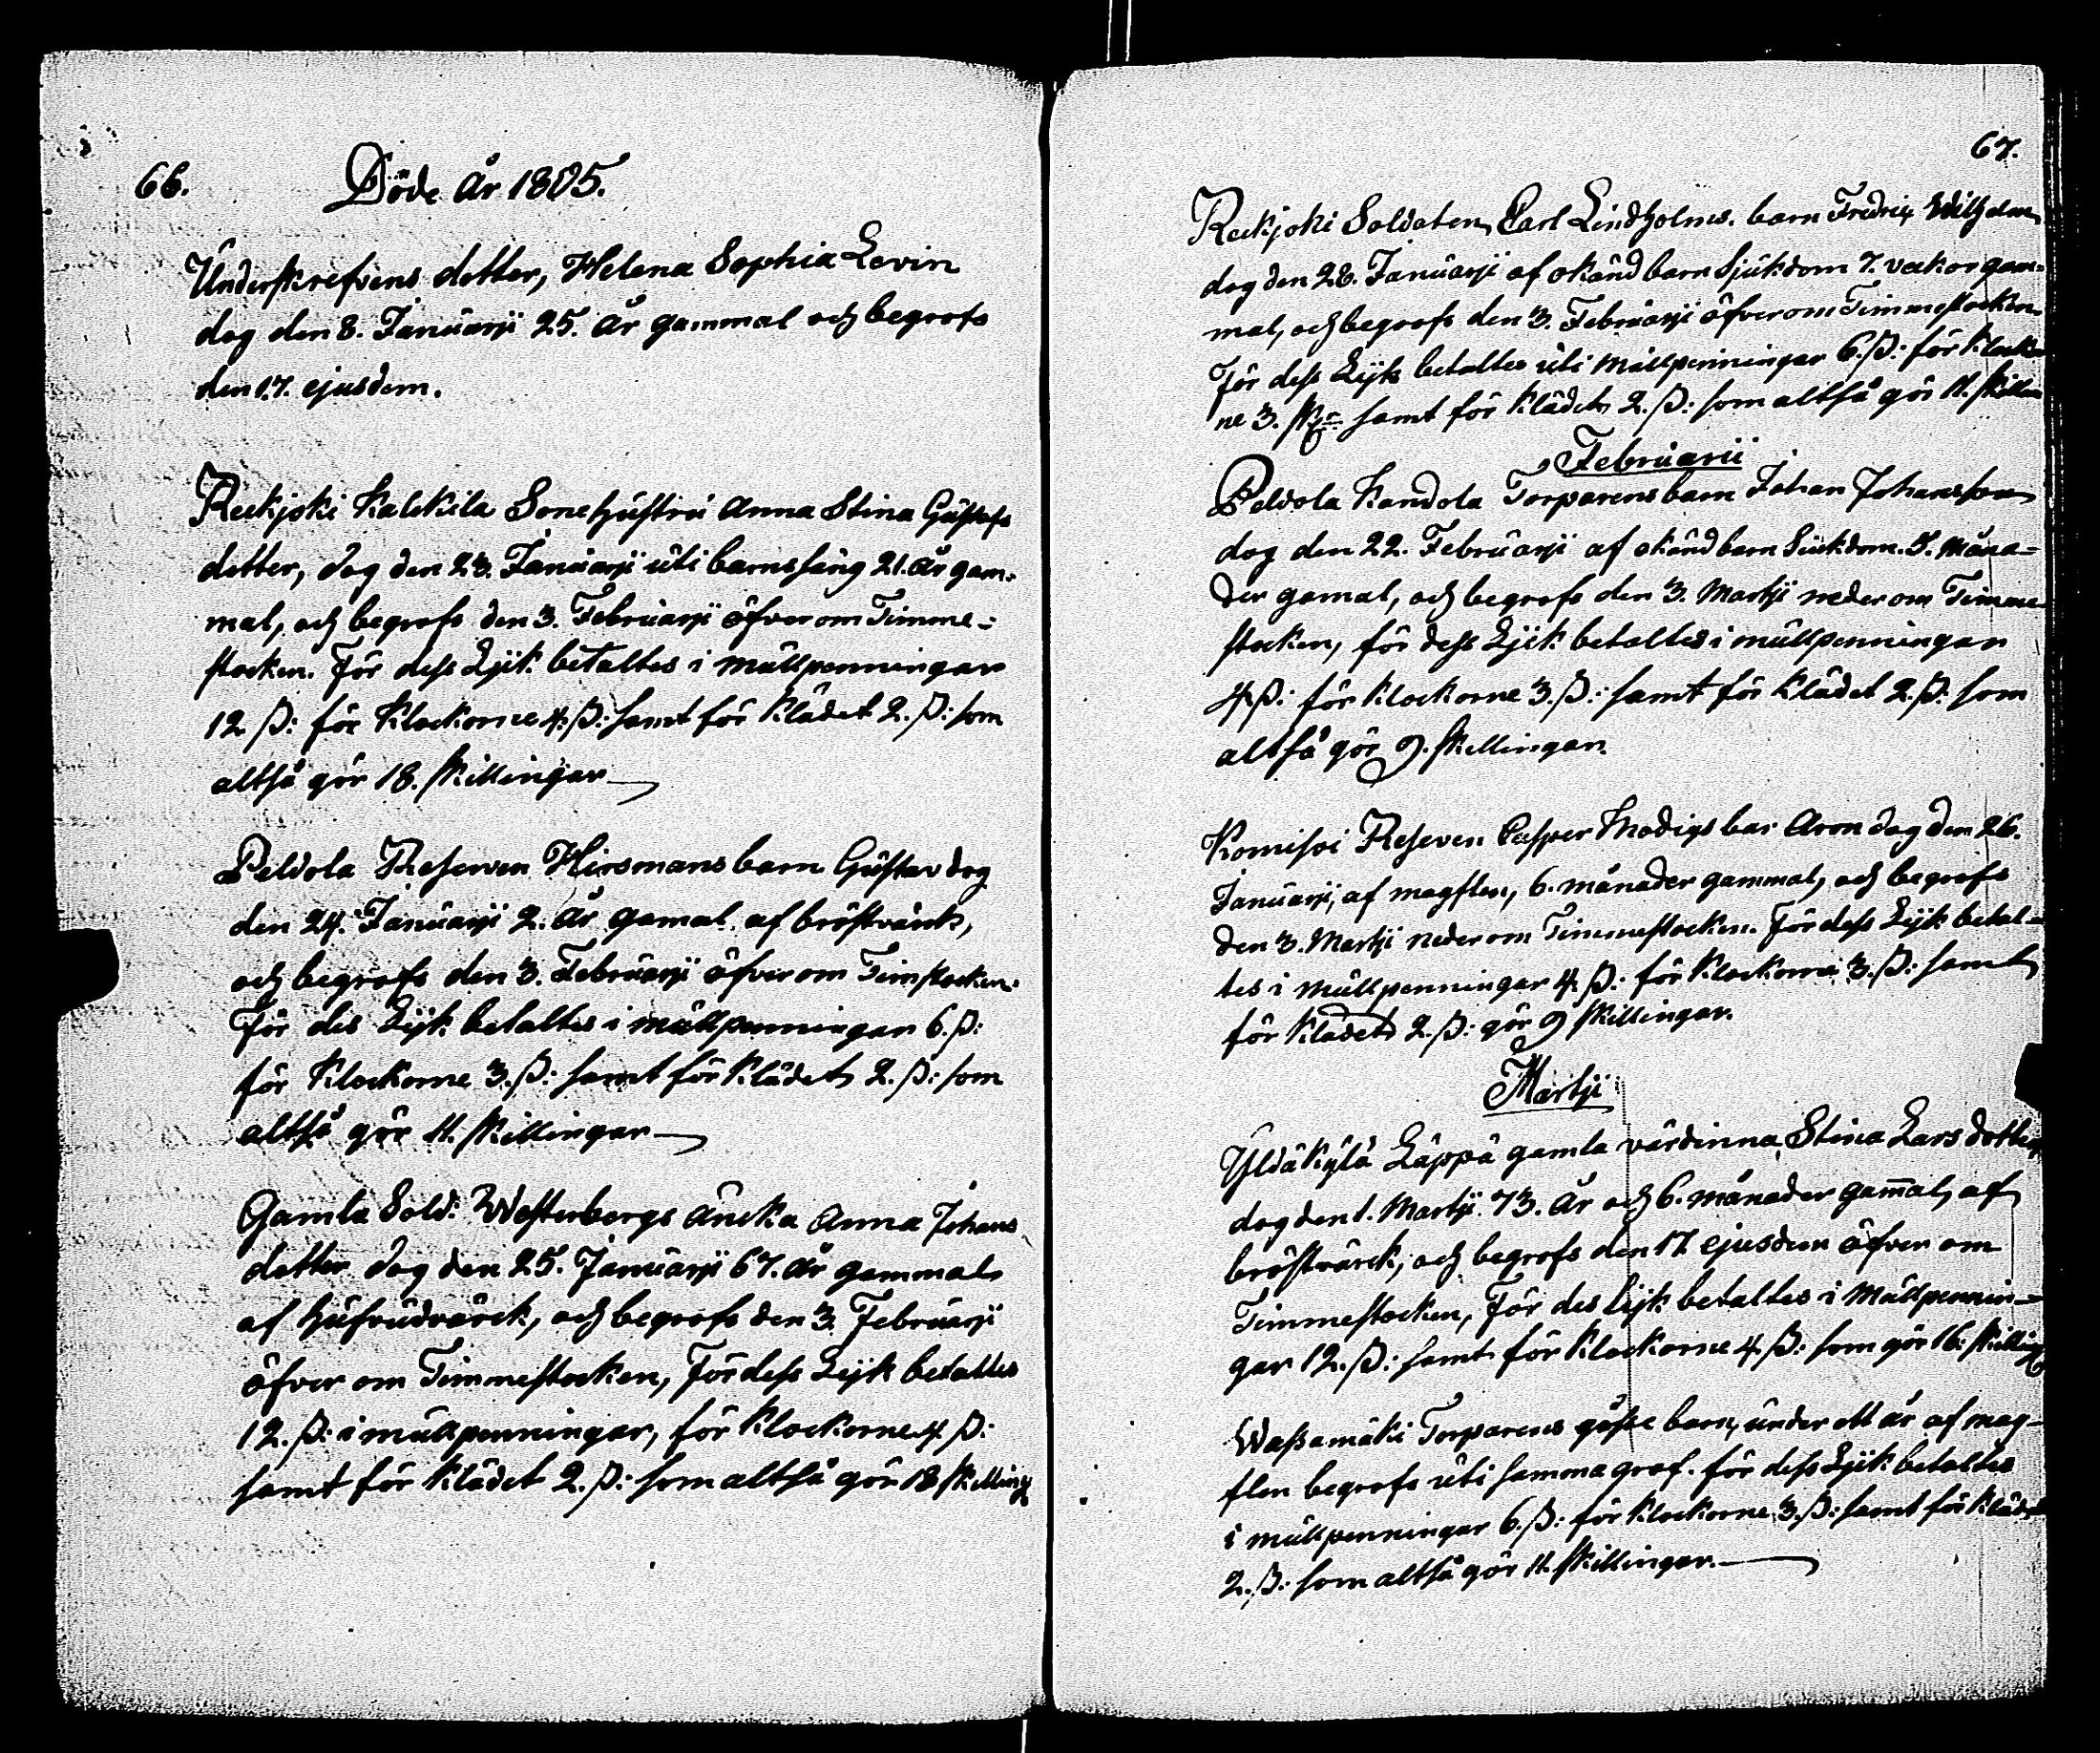 66.
Döde År 1805.
Underskrefvens dotter, Helena Sophia Levin
dog den 8. Januarji 25. År gammal och begrofs
den 17. ejusdem.
Reekjoki Kalckila Sonehustru Anna Stina Gustafs
dotter, dog den 23. Januarji uti barnssäng 21. År gam-
mal, och begrofs den 3. Februarji öfver om Timme-
stocken. För dess Lijk betaltes i mullpenningar
12 ß: för Klockorne 4. ß: samt för Klädet 2. ß: som
altså gör 18. skillingar
Peldola Reserven Hirsmans barn Gustav dog
den 24. Januarji 2. År gamal. af bröstvärck,
och begrofs den 3. Februarji öfver om Timstocken.
För des Lijk betaltes i mullpenningar 6. ß:
för Klockorne 3. ß: samt för Klädet 2. ß: som
altså gör 11. skillingar
Gamla Sold: Westerbergs Äncka Anna Johans
dotter dog den 25. Januarji 67. År gammal
af hufvudvärck, och begrofs den 3. Februarji
öfver om Timmestocken, För dess Lijk betaltes
12. ß: i mullpenningar, för Klockorne 4 ß:
samt för Klädet 2. ß: som altså gör 18 skilling
67.
Reekjoki Soldaten Carl Lindholms. barn Fredrix Wilhelm
dog den 28. Januarji af okänd barn Sjukdom 7. veckor gam-
mal, och begrofs den 3. Februarji öfver om Timmestocken
För dess Lijk betaltes uti mullpenningar 6. ß: för Klockor
ne 3. sk: samt för Klädet 2. ß: som altså gör 11. skillin
Februarii
Peldola Kandola Torparens barn Johan Johansson
dog den 22. Februarji af okänd barn Siukdom. 5. måna-
der gamal, och begrofs den 3. Martji neder om Timme
stocken, för dess Lijk betaltes i mullpenningar
4 ß: för Klockorne 3. ß: samt för Klädet 2. ß: som
altså gör 9. skillingar.
Komisoi Reseven Casper Modigs bar Aron dog den 26.
Januarji, af magflen, 6. månader gammal, och begrofs
den 3. Martji neder om Timmestocken. För dess Lijk betal-
tes i mullpenningar 4 ß: för Klockorne 3. ß: samt
för Klädet 2. ß: gör 9 skillingar.
Martji
Yldäkylä Läppä gamla värdinna Stina Lars dotter
dog den 1. Martji 73. År och 6. månader gam̄al, af
bröstvärck, och begrofs den 17 ejusdem öfver om
Timmestocken, För des lijk betaltes i mullpennin-
gar 12. ß: samt för Klockorne 4 ß: som gör 16. skilling
Wassamäki Torparens gosse barn, under ett år af mag-
flen begrofs uti samma graf. för dess Lijk betaltes
i mullpenningar 6. ß: för Klockorne 3. ß: samt för Klädet
2. ß: som altså gör 11. skillingar.